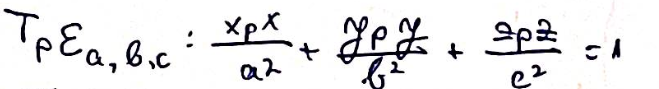 T_p ℰ_{a,b,c} : \frac{x_p x}{a^2} + \frac{y_p y}{b^2} + \frac{z_p z}{c^2} = 1